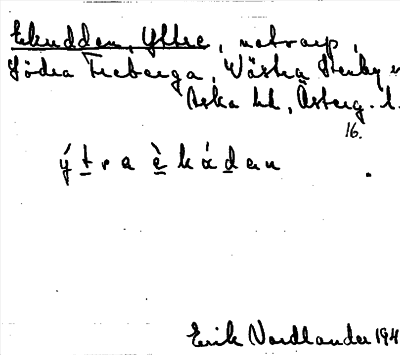 Ekudden, Yttre, metr arp,
Södra Freberga, Västra Stenby sn
Aska hd, Österg. l.
16.
ý t r a è k á d a n .
Erik Nordlander 194